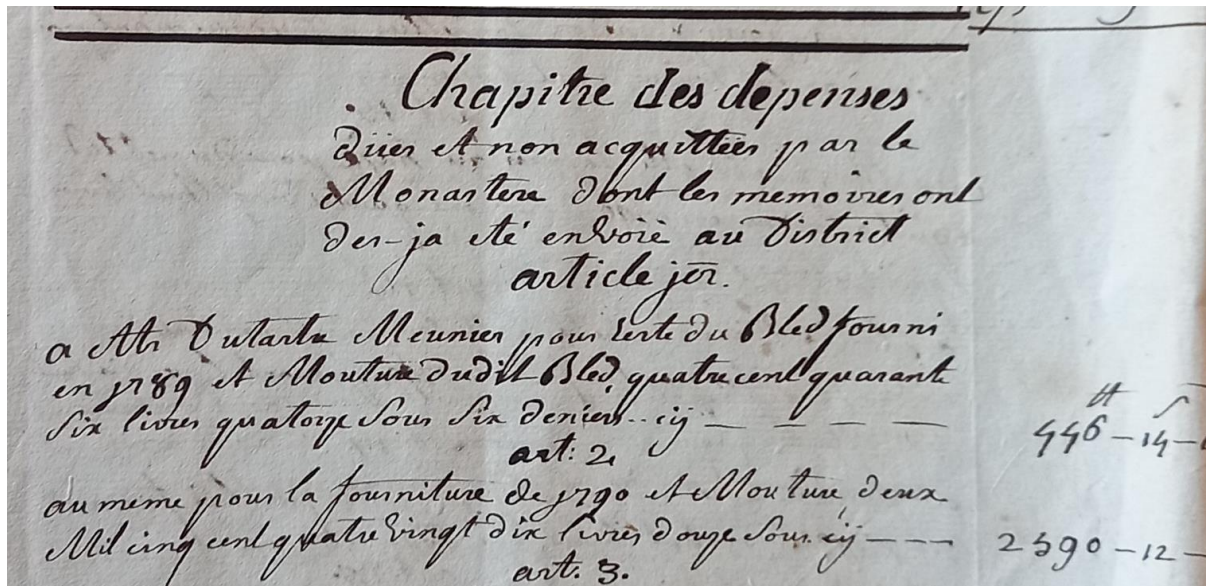 Chapitre des depenses
dües et non acquittées par le
Monastere dont les memoires ont
des-ja eté envoié au District
article jer.
a Mr Dutartre Meunier pour reste du Bled fourni
en 1789 et Mouture dudit Bled, quatre cent quarante
six livres quatorze sous six deniers.. cy — — — — 446 ₶ – 14 s –
art: 2.
au meme pour la fourniture de 1790 et Mouture deux
Mil cinq cent quatre vingt dix livres douze sous cy — — — 2590 – 12 –
art. 3.